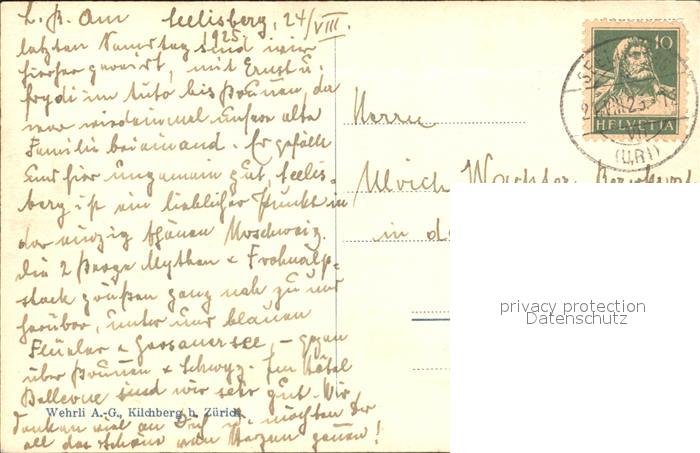 L. B. Am Seelisberg, 24/VIII.
1925.
letzten Samstag sind wir
hierher gereist, mit Ernst u.
Frydi im Auto bis Brunnen, da
war wiedereinmal unsere alte
Familie beieinand. Es gefällt
uns hier ungemein gut, Seelis-
berg ist ein lieblicher Punkt in
der einzig schönen
Die 2 Berge Mythen & Frohnalp-
stock grüßen ganz nah zu uns
herüber, unter uns blauen
& see, – gegen
über Brunnen & Schwyz. Im Hôtel
Bellevue sind wir sehr gut. Wir
denken viel an Dich u. möchten Dir
all das Schöne von Herzen gönnen!
Wehrli A.-G., Kilchberg b. Zürich
10
HELVETIA
(URI)
Herrn
Ulrich
in d
privacy protection
Datenschutz